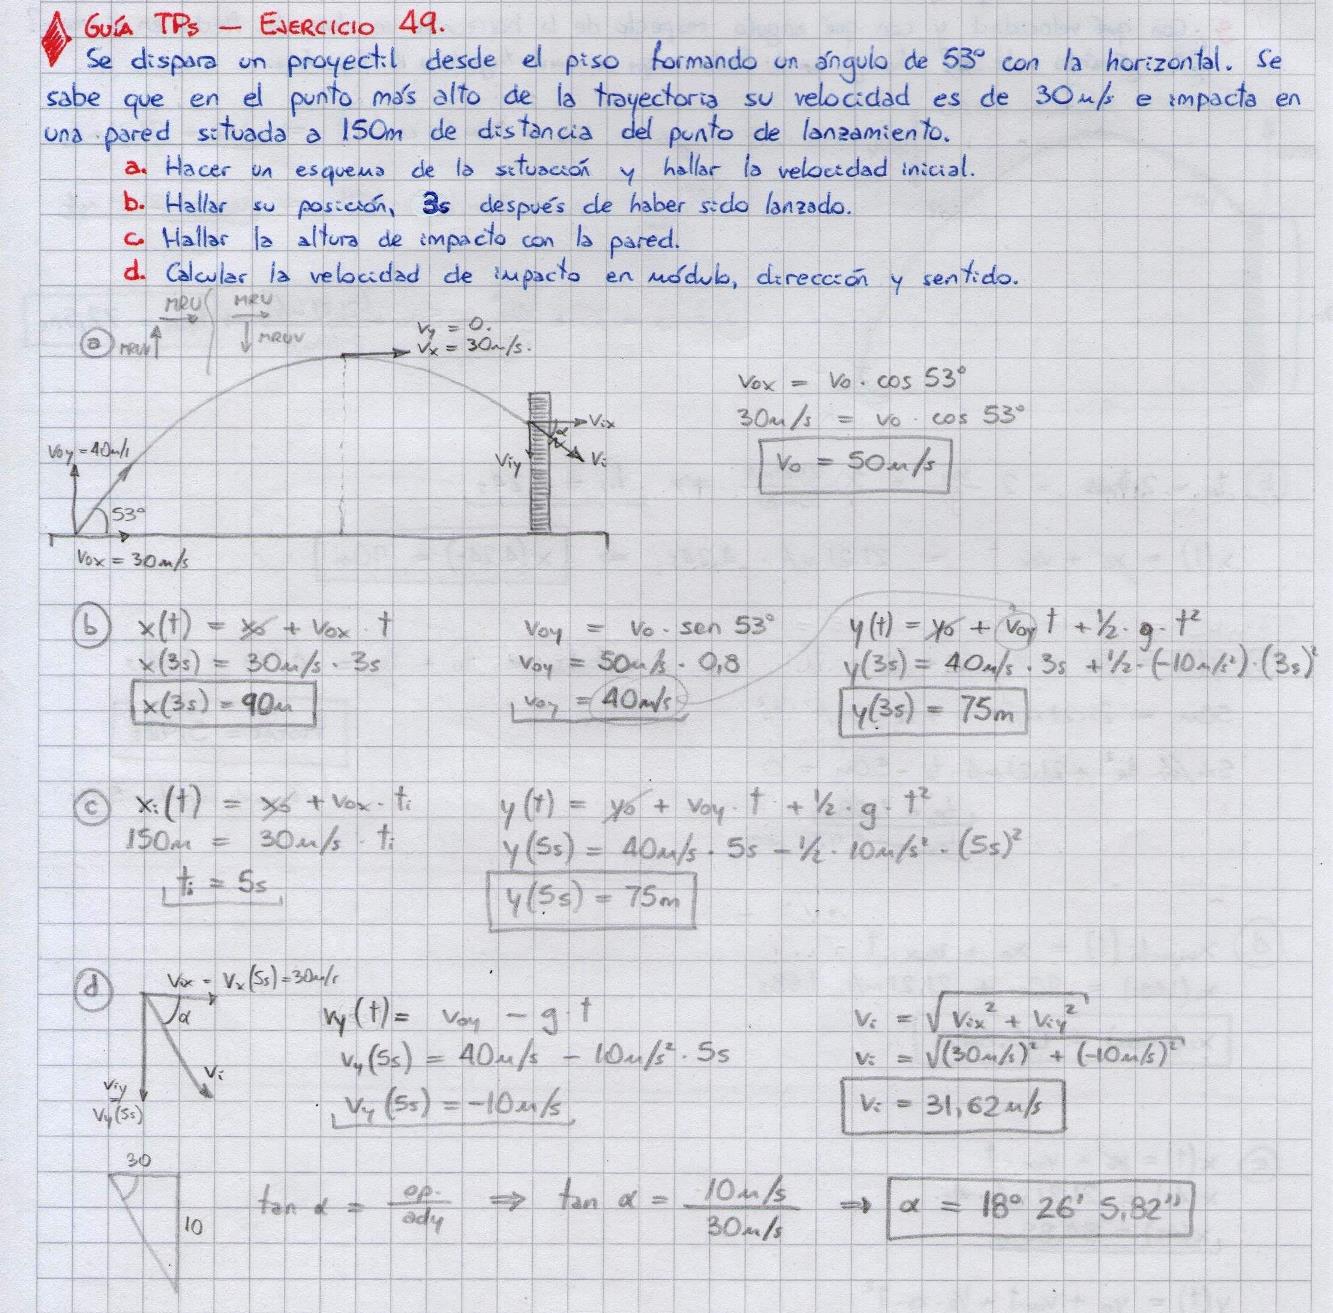 GUÍA TPs — EJERCICIO 49.
Se dispara un proyectil desde el piso formando un ángulo de 53° con la horizontal. Se
sabe que en el punto más alto de la trayectoria su velocidad es de 30m/s e impacta en
una pared situada a 150m de distancia del punto de lanzamiento.
a. Hacer un esquema de la situación y hallar la velocidad inicial.
b. Hallar su posición, 3s después de haber sido lanzado.
c. Hallar la altura de impacto con la pared.
d. Calcular la velocidad de impacto en módulo, dirección y sentido.
MRU MRU
a MRUV MRUV
Vy = 0.
Vx = 30m/s.
Voy = 40m/s
53°
Vox = 30m/s
Vix
α
Viy Vi
Vox = Vo · cos 53°
30m/s = Vo · cos 53°
Vo = 50m/s
b x(t) = xo + Vox · t
x(3s) = 30m/s · 3s
x(3s) = 90m
Voy = Vo · sen 53°
Voy = 50m/s · 0,8
Voy = 40m/s
y(t) = yo + Voy t + 1/2 · g · t²
y(3s) = 40m/s · 3s + 1/2 · (-10m/s²) · (3s)²
y(3s) = 75m
c xi(t) = xo + Vox · ti
150m = 30m/s · ti
ti = 5s
y(t) = yo + Voy · t + 1/2 · g · t²
y(5s) = 40m/s · 5s - 1/2 · 10m/s² · (5s)²
y(5s) = 75m
d Vix = Vx(5s) = 30m/s
α
Vi
Viy
Vy(5s)
Vy(t) = Voy - g · t
Vy(5s) = 40m/s - 10m/s² · 5s
Vy(5s) = -10m/s
Vi = √(Vix² + Viy²)
Vi = √((30m/s)² + (-10m/s)²)
Vi = 31,62m/s
30
10
tan α = op./ady ⇒ tan α = 10m/s / 30m/s ⇒ α = 18° 26' 5,82"